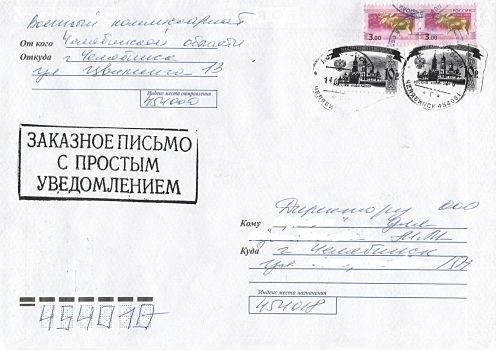 Военный комиссариат
От кого Челябинской области
Откуда г Челябинск
ул Цвиллинга 13
Индекс места отправления
454000
РОССИЯ
3.00
3.00
10
ЧЕЛЯБИНСК 45400
ЗАКАЗНОЕ ПИСЬМО
С ПРОСТЫМ
УВЕДОМЛЕНИЕМ
Директору ООО
Кому
Куда г Челябинск
Индекс места назначения
454018
454010